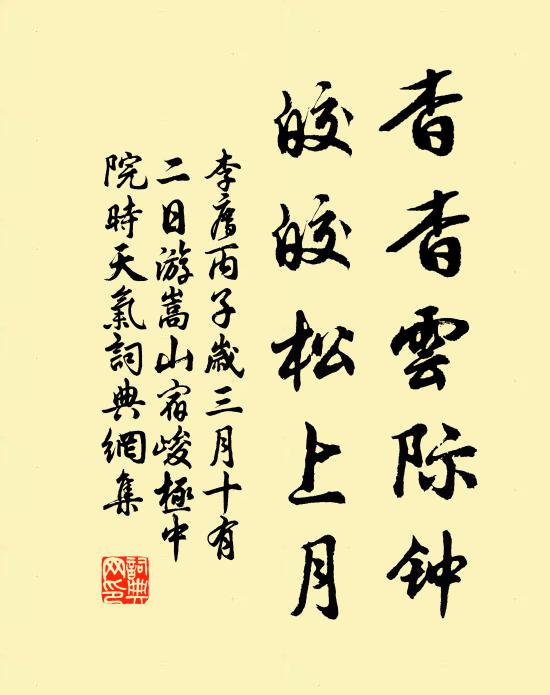 杳杳雲际钟
皎皎松上月
李廌丙子歲三月十有
二日游嵩山宿峻極中
院時天氣詞典網集
詞典
网印